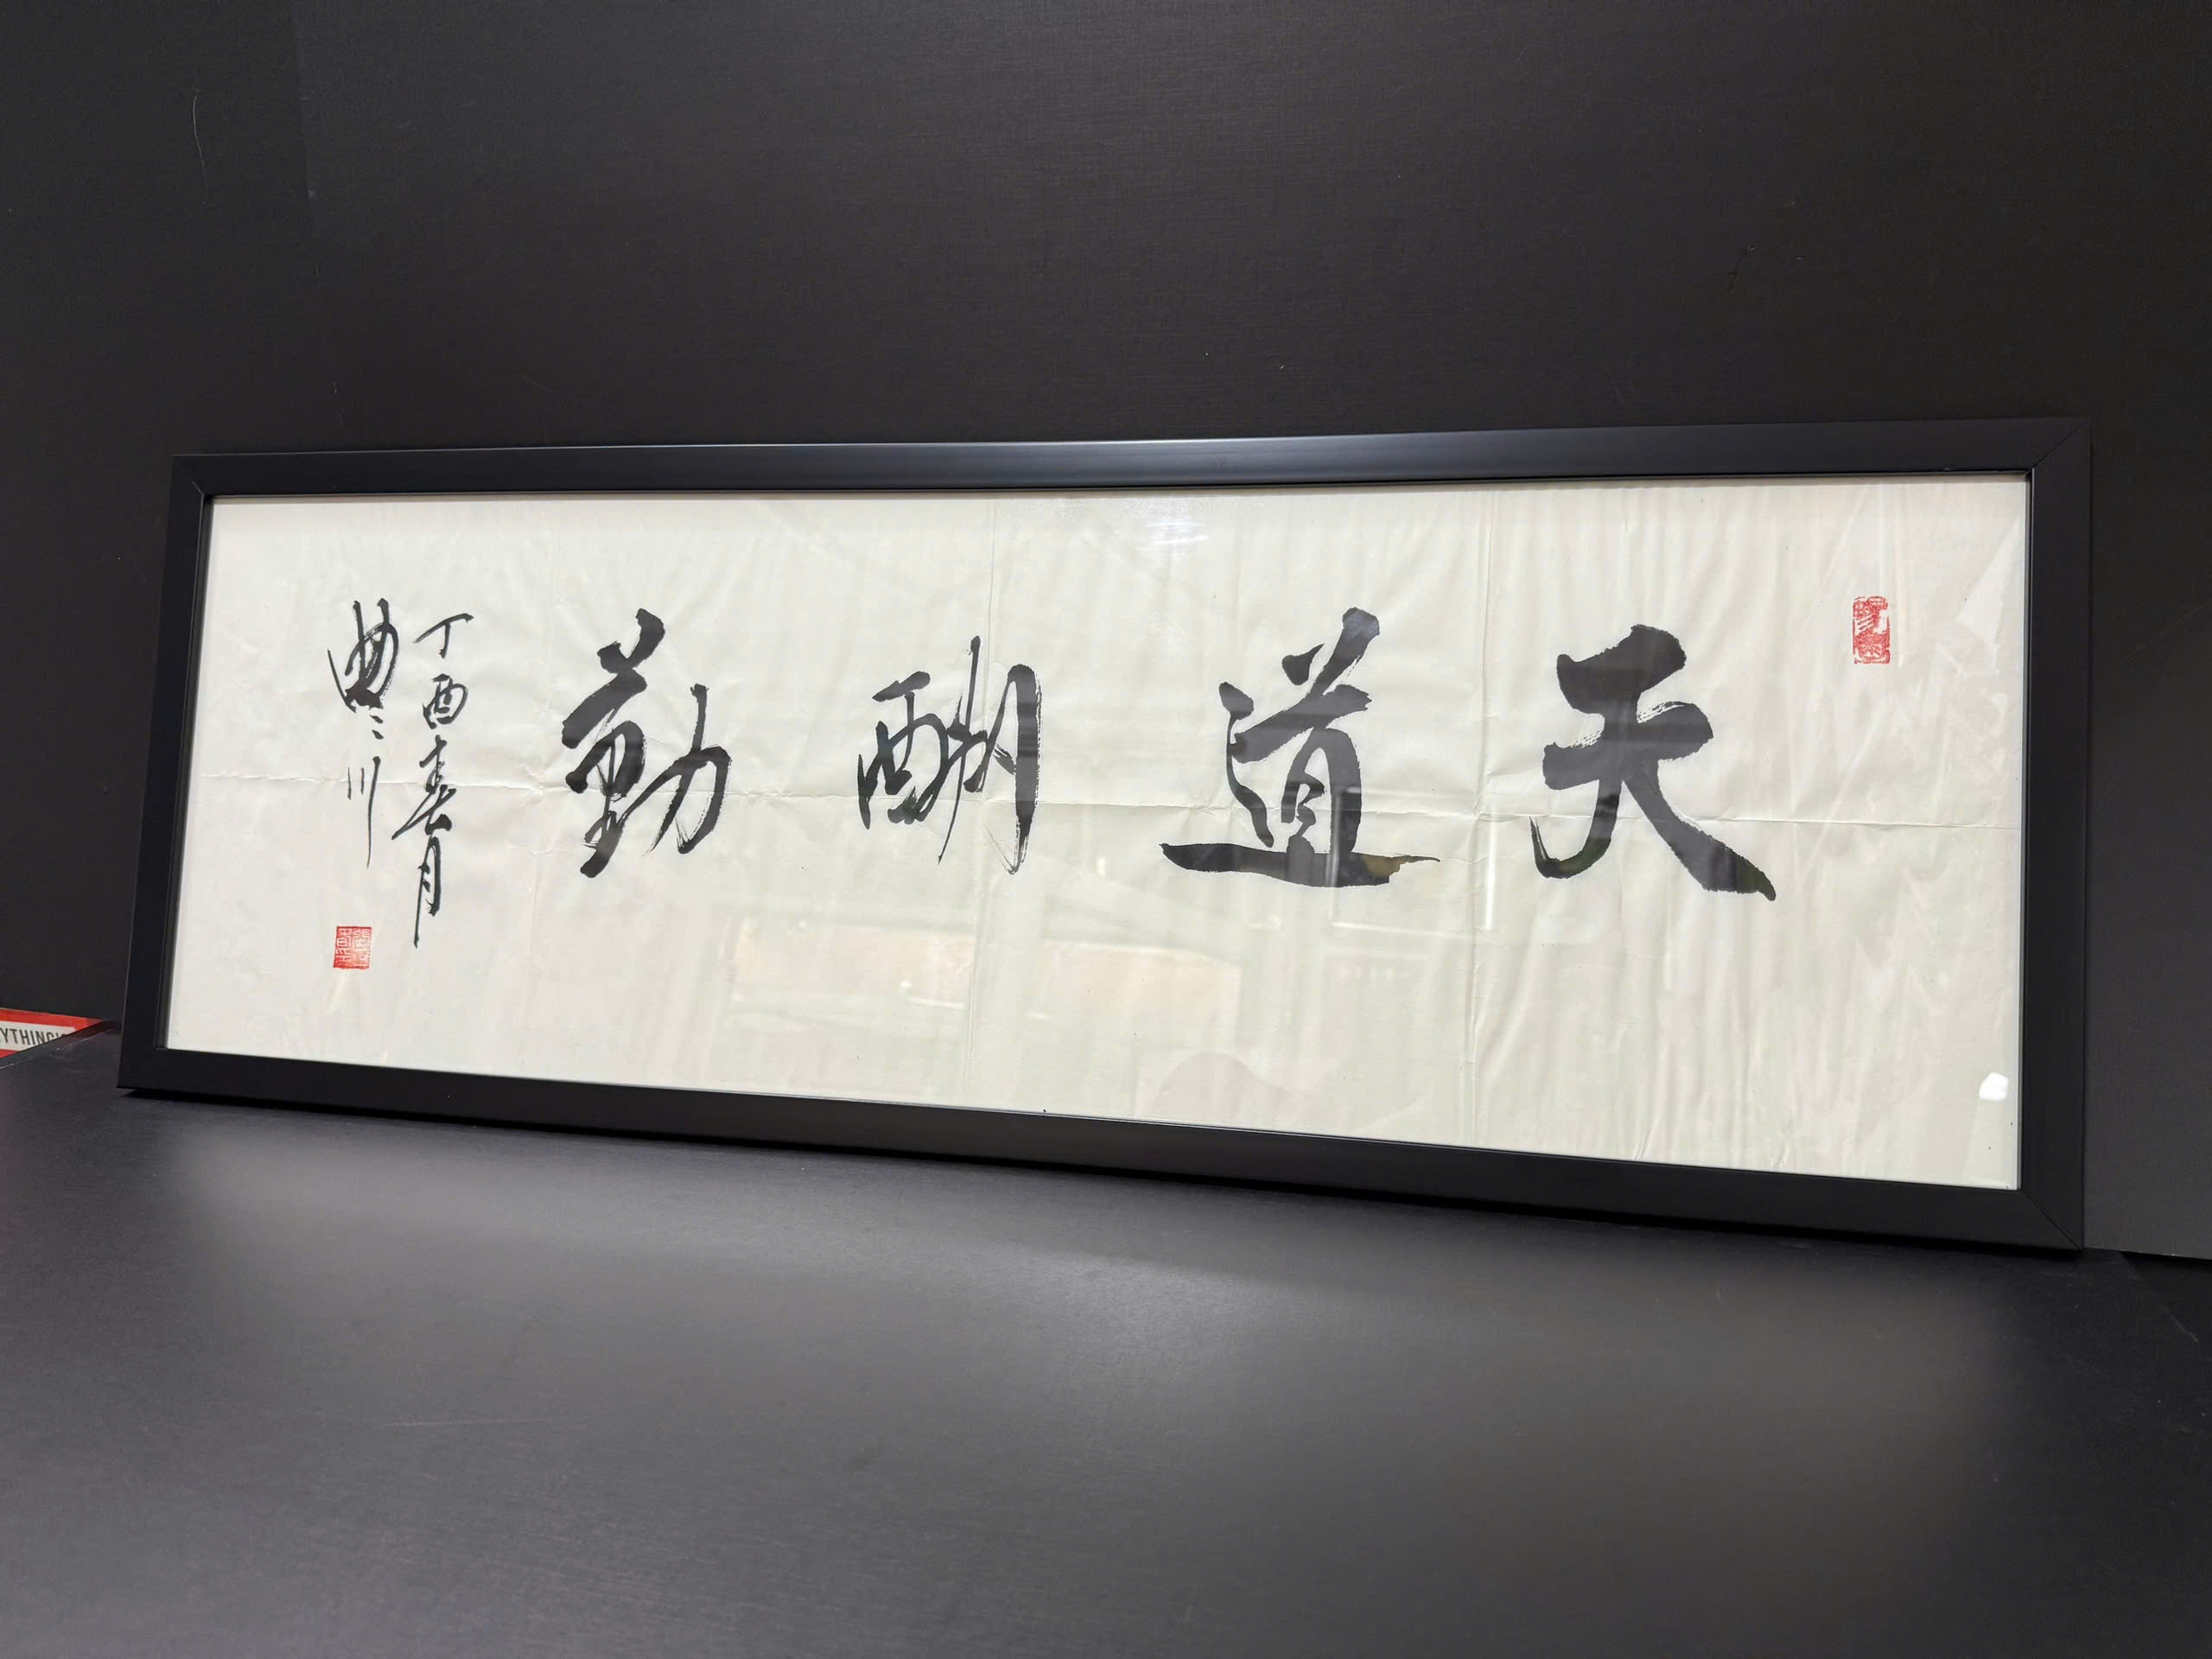 天道酬勤
丁酉春月
YTHING